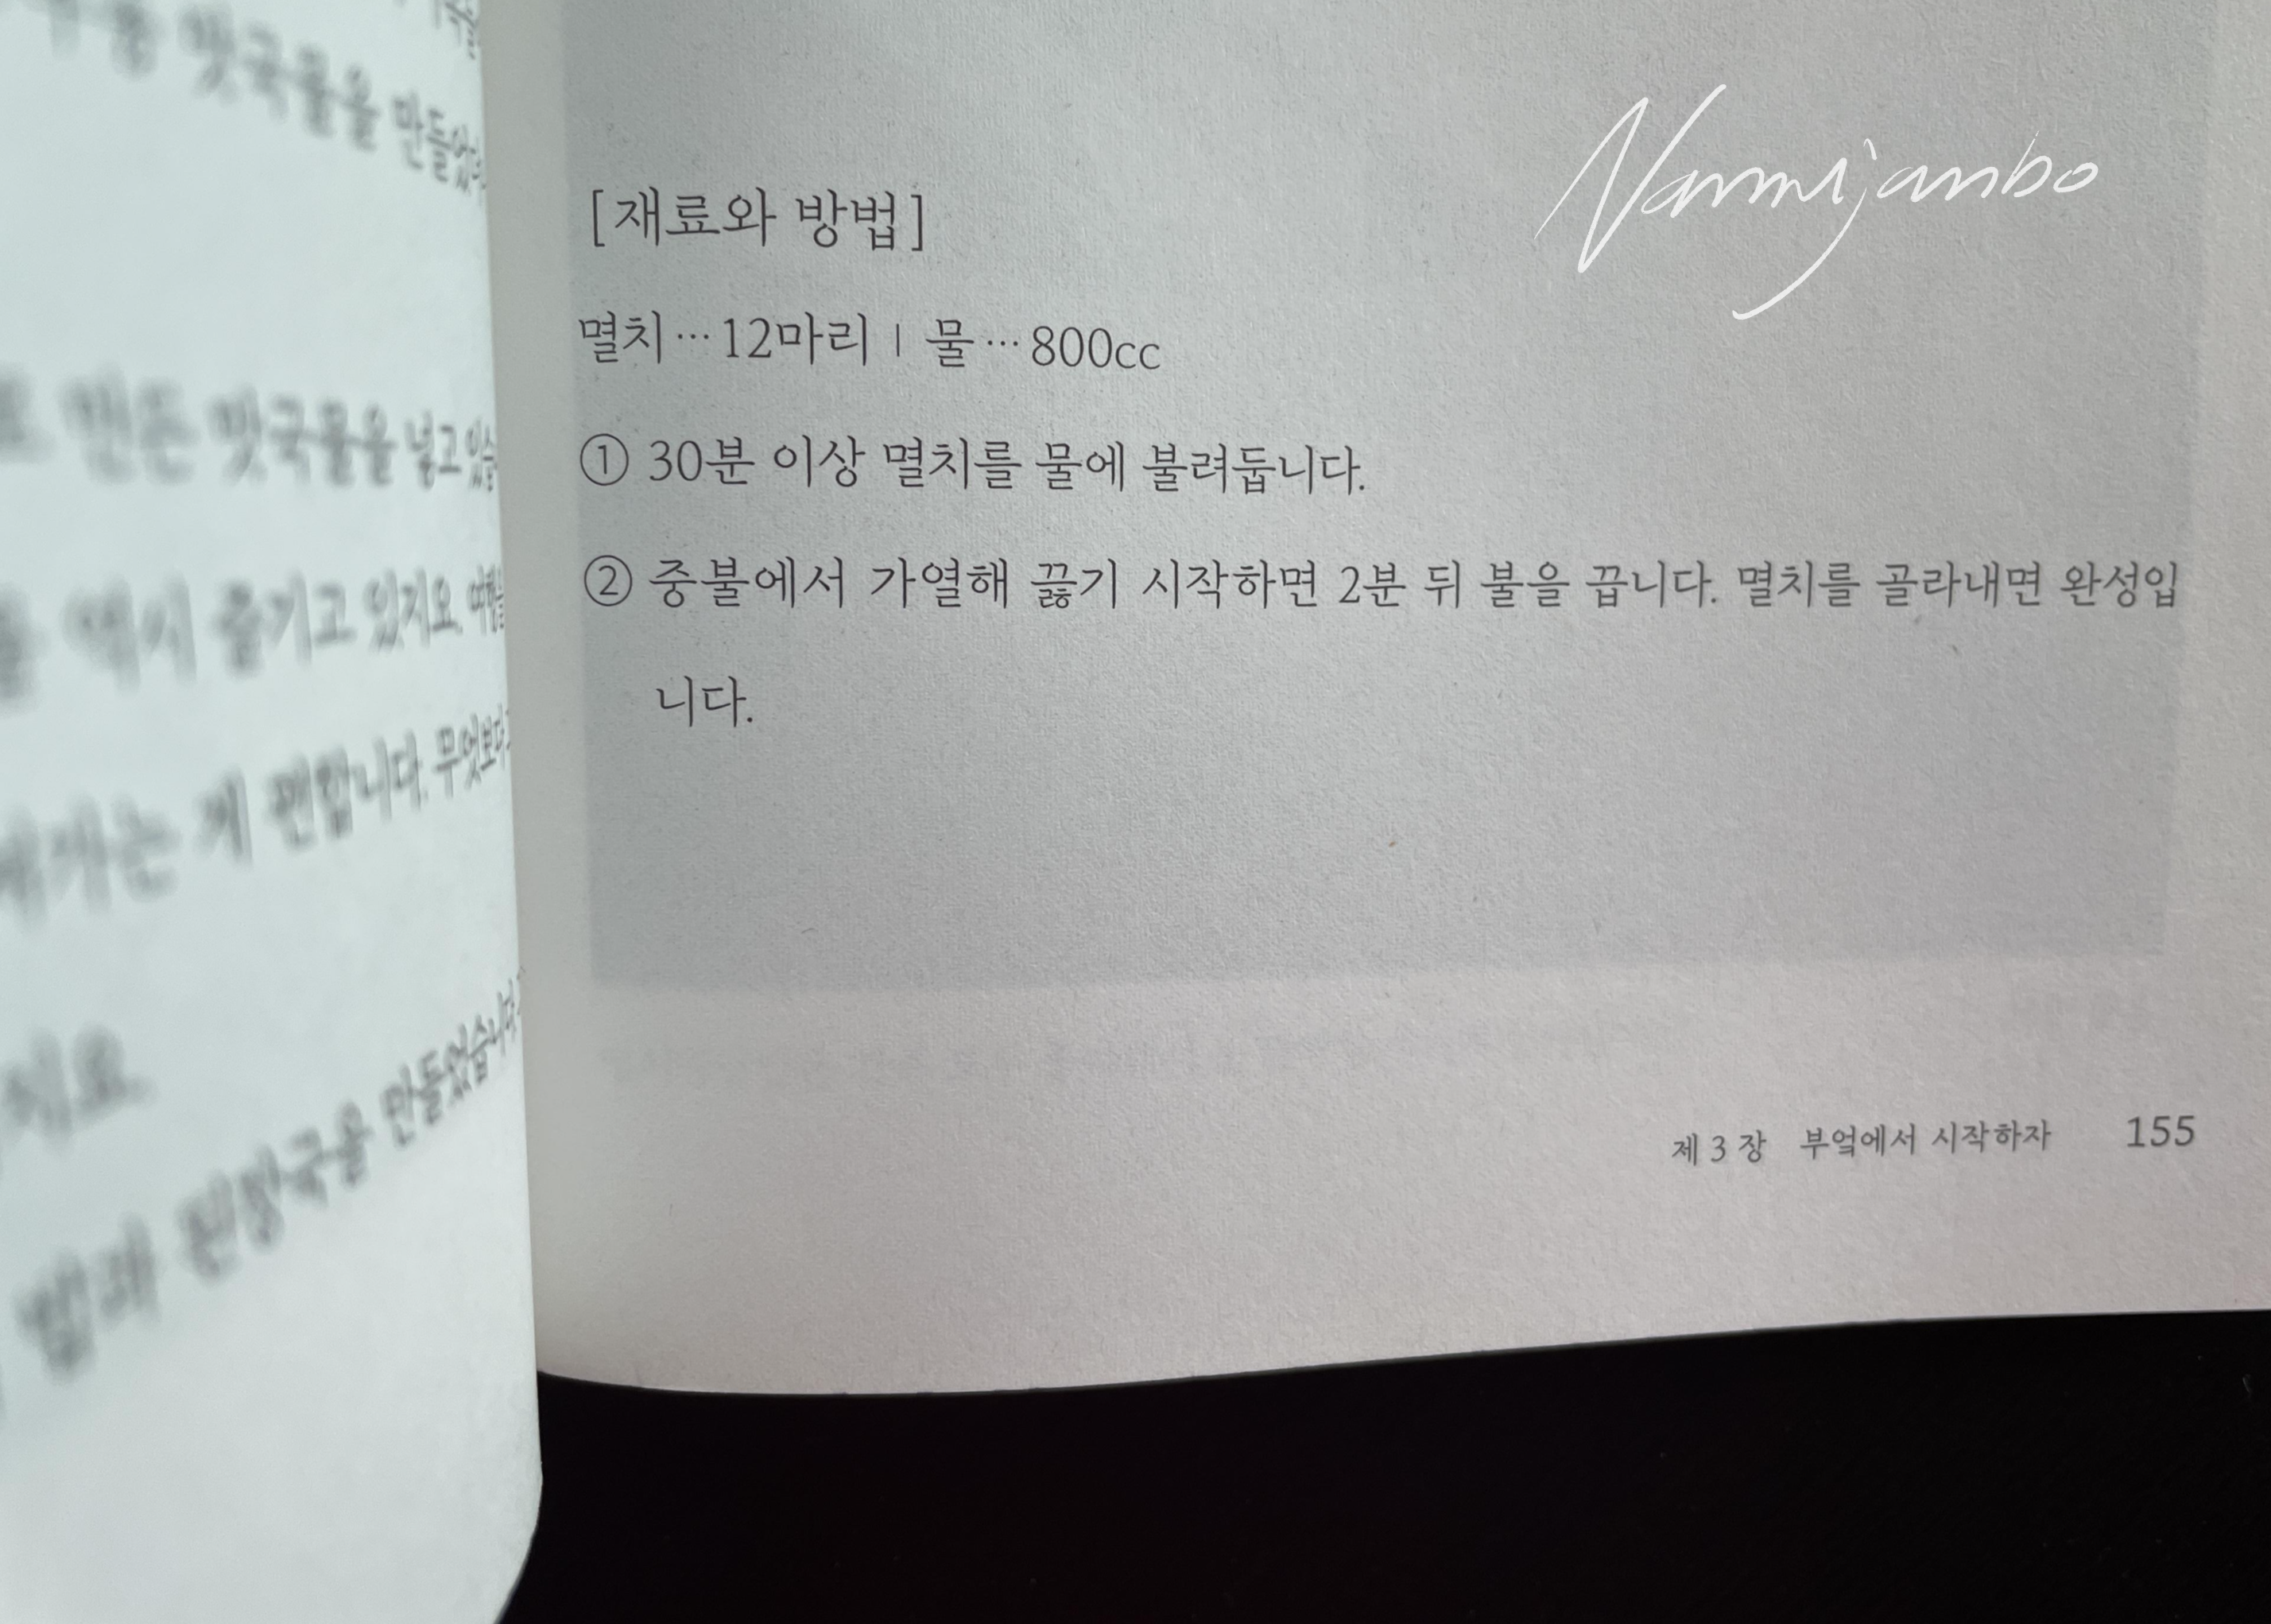 맛국물을 만들었
만든 맛국물을 넣고 있습
역시 즐기고 있지요. 여행을
게 편합니다. 무엇보다
된장국을 만들었습니다.
Nammijanbo
[재료와 방법]
멸치…12마리 | 물…800cc
① 30분 이상 멸치를 물에 불려둡니다.
② 중불에서 가열해 끓기 시작하면 2분 뒤 불을 끕니다. 멸치를 골라내면 완성입
니다.
제 3 장 부엌에서 시작하자 155